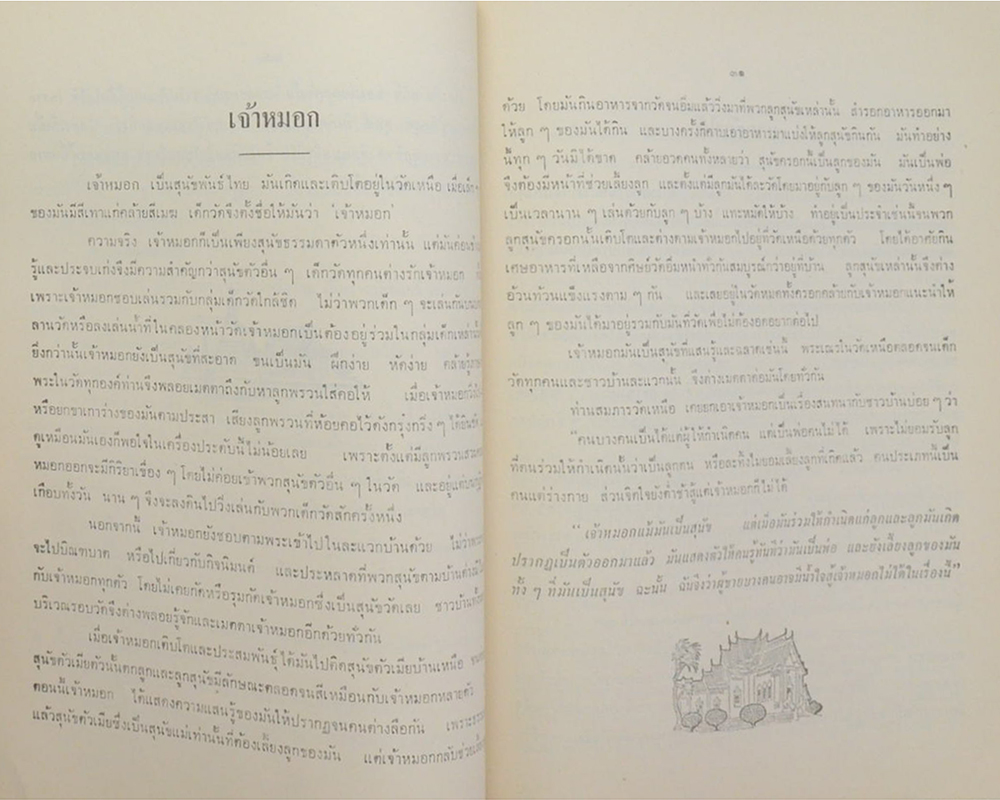 เจ้าหมอก
เจ้าหมอก เป็นสุนัขพันธุ์ไทย มันเกิดและเติบโตอยู่ในวัดเหนือ เมื่อเล็ก ๆ
ของมันมีสีเทาแก่คล้ายสีเมฆ เด็กวัดจึงตั้งชื่อให้มันว่า ‘เจ้าหมอก’
ความจริง เจ้าหมอกก็เป็นเพียงสุนัขธรรมดาตัวหนึ่งเท่านั้น แต่มันค่อน
รู้และประจบเก่งจึงมีความสำคัญกว่าสุนัขตัวอื่น ๆ เด็กวัดทุกคนต่างรักเจ้าหมอก
เพราะเจ้าหมอกชอบเล่นรวมกับกลุ่มเด็กวัดใกล้ชิด ไม่ว่าพวกเด็ก ๆ จะเล่นกัน
ลานวัดหรือลงเล่นน้ำที่ในคลองหน้าวัดเจ้าหมอกเป็นต้องอยู่ร่วมในกลุ่มเด็กเหล่า
ยิ่งกว่านั้นเจ้าหมอกยังเป็นสุนัขที่สะอาด ขนเป็นมัน ฝึกง่าย หัดง่าย คล้าย
พระในวัดทุกองค์ท่านจึงพลอยเมตตาถึงกับหาลูกพรวนใส่คอให้ เมื่อเจ้าหมอก
หรือยกขาเการ่างของมันตามประสา เสียงลูกพรวนที่ห้อยคอไว้ดังกรุ๋งกริ๋ง ๆ ได้ยิน
ดูเหมือนมันเองก็พอใจในเครื่องประดับนี้ไม่น้อยเลย เพราะตั้งแต่มีลูกพรวน
หมอกออกจะมีกิริยาเชื่อง ๆ โดยไม่ค่อยเข้าพวกสุนัขตัวอื่น ๆ ในวัด และอยู่แต่
เกือบทั้งวัน นาน ๆ จึงจะลงดินไปวิ่งเล่นกับพวกเด็กวัดสักครั้งหนึ่ง
นอกจากนี้ เจ้าหมอกยังชอบตามพระเข้าไปในละแวกบ้านด้วย ไม่ว่า
จะไปบิณฑบาต หรือไปเกี่ยวกับกิจนิมนต์ และประหลาดที่พวกสุนัขตามบ้าน
กับเจ้าหมอกทุกตัว โดยไม่เคยกัดหรือรุมกัดเจ้าหมอกซึ่งเป็นสุนัขวัดเลย ชาวบ้าน
บริเวณรอบวัดจึงต่างพลอยรู้จักและเมตตาเจ้าหมอกอีกด้วยทั่วกัน
เมื่อเจ้าหมอกเติบโตและประสมพันธุ์ได้มันไปติดสุนัขตัวเมียบ้านเหนือ
สุนัขตัวเมียตัวนั้นตกลูกและลูกสุนัขมีลักษณะตลอดจนสีเหมือนกับเจ้าหมอกหลายตัว
ตอนนี้เจ้าหมอก ได้แสดงความแสนรู้ของมันให้ปรากฏจนคนต่างลือกัน เพราะ
แล้วสุนัขตัวเมียซึ่งเป็นสุนัขแม่เท่านั้นที่ต้องเลี้ยงลูกของมัน แต่เจ้าหมอกกลับช่วย
๓๑
ด้วย โดยมันกินอาหารจากวัดจนอิ่มแล้ววิ่งมาที่พวกลูกสุนัขเหล่านั้น สำรอกอาหารออกมา
ให้ลูก ๆ ของมันได้กิน และบางครั้งก็คาบเอาอาหารมาแบ่งให้ลูกสุนัขกินกัน มันทำอย่าง
นี้ทุก ๆ วันมิได้ขาด คล้ายอวดคนทั้งหลายว่า สุนัขครอกนี้เป็นลูกของมัน มันเป็นพ่อ
จึงต้องมีหน้าที่ช่วยเลี้ยงลูก และตั้งแต่มีลูกมันได้ละวัดโดยมาอยู่กับลูก ๆ ของมันวันหนึ่ง ๆ
เป็นเวลานาน ๆ เล่นด้วยกับลูก ๆ บ้าง แทะหมัดให้บ้าง ทำอยู่เป็นประจำเช่นนี้จนพวก
ลูกสุนัขครอกนั้นเติบโตและต่างตามเจ้าหมอกไปอยู่ที่วัดเหนือด้วยทุกตัว โดยได้อาศัยกิน
เศษอาหารที่เหลือจากศิษย์วัดอิ่มหน้าทั่วกันสมบูรณ์กว่าอยู่ที่บ้าน ลูกสุนัขเหล่านั้นจึงต่าง
อ้วนท้วนแข็งแรงตาม ๆ กัน และเลยอยู่ในวัดหมดทั้งครอกคล้ายกับเจ้าหมอกแนะนำให้
ลูก ๆ ของมันได้มาอยู่รวมกับมันที่วัดเพื่อไม่ต้องอดอยากต่อไป
เจ้าหมอกมันเป็นสุนัขที่แสนรู้และฉลาดเช่นนี้ พระเณรในวัดเหนือตลอดจนเด็ก
วัดทุกคนและชาวบ้านละแวกนั้น จึงต่างเมตตาต่อมันโดยทั่วกัน
ท่านสมภารวัดเหนือ เคยยกเอาเจ้าหมอกเป็นเรื่องสนทนากับชาวบ้านบ่อย ๆ ว่า
“คนบางคนเป็นได้แต่ผู้ให้กำเนิดคน แต่เป็นพ่อคนไม่ได้ เพราะไม่ยอมรับลูก
ที่ตนร่วมให้กำเนิดนั้นว่าเป็นลูกตน หรือละทิ้งไม่ยอมเลี้ยงลูกที่เกิดแล้ว คนประเภทนี้เป็น
คนแต่ร่างกาย ส่วนจิตใจยังต่ำช้าสู้แต่เจ้าหมอกก็ไม่ได้
“เจ้าหมอกแม้มันเป็นสุนัข แต่เมื่อมันร่วมให้กำเนิดแก่ลูกและลูกมันเกิด
ปรากฏเป็นตัวออกมาแล้ว มันแสดงตัวให้คนรู้ทันทีว่ามันเป็นพ่อ และยังเลี้ยงลูกของมัน
ทั้ง ๆ ที่มันเป็นสุนัข ฉะนั้น ฉันจึงว่าผู้ชายบางคนอาจมีน้ำใจสู้เจ้าหมอกไม่ได้ในเรื่องนี้”